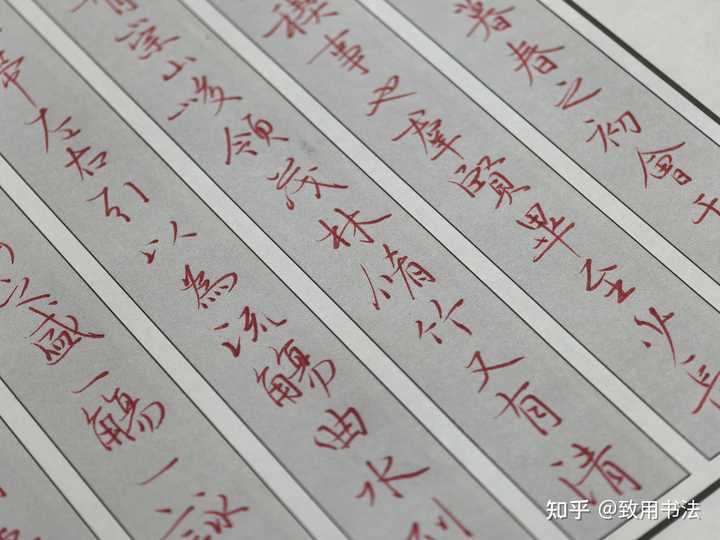 暮春之初會于
禊事也羣賢畢至少長
有崇山峻領茂林脩竹又有清
帶左右引以為流觴曲水列
之盛一觴一詠
知乎 @致用书法